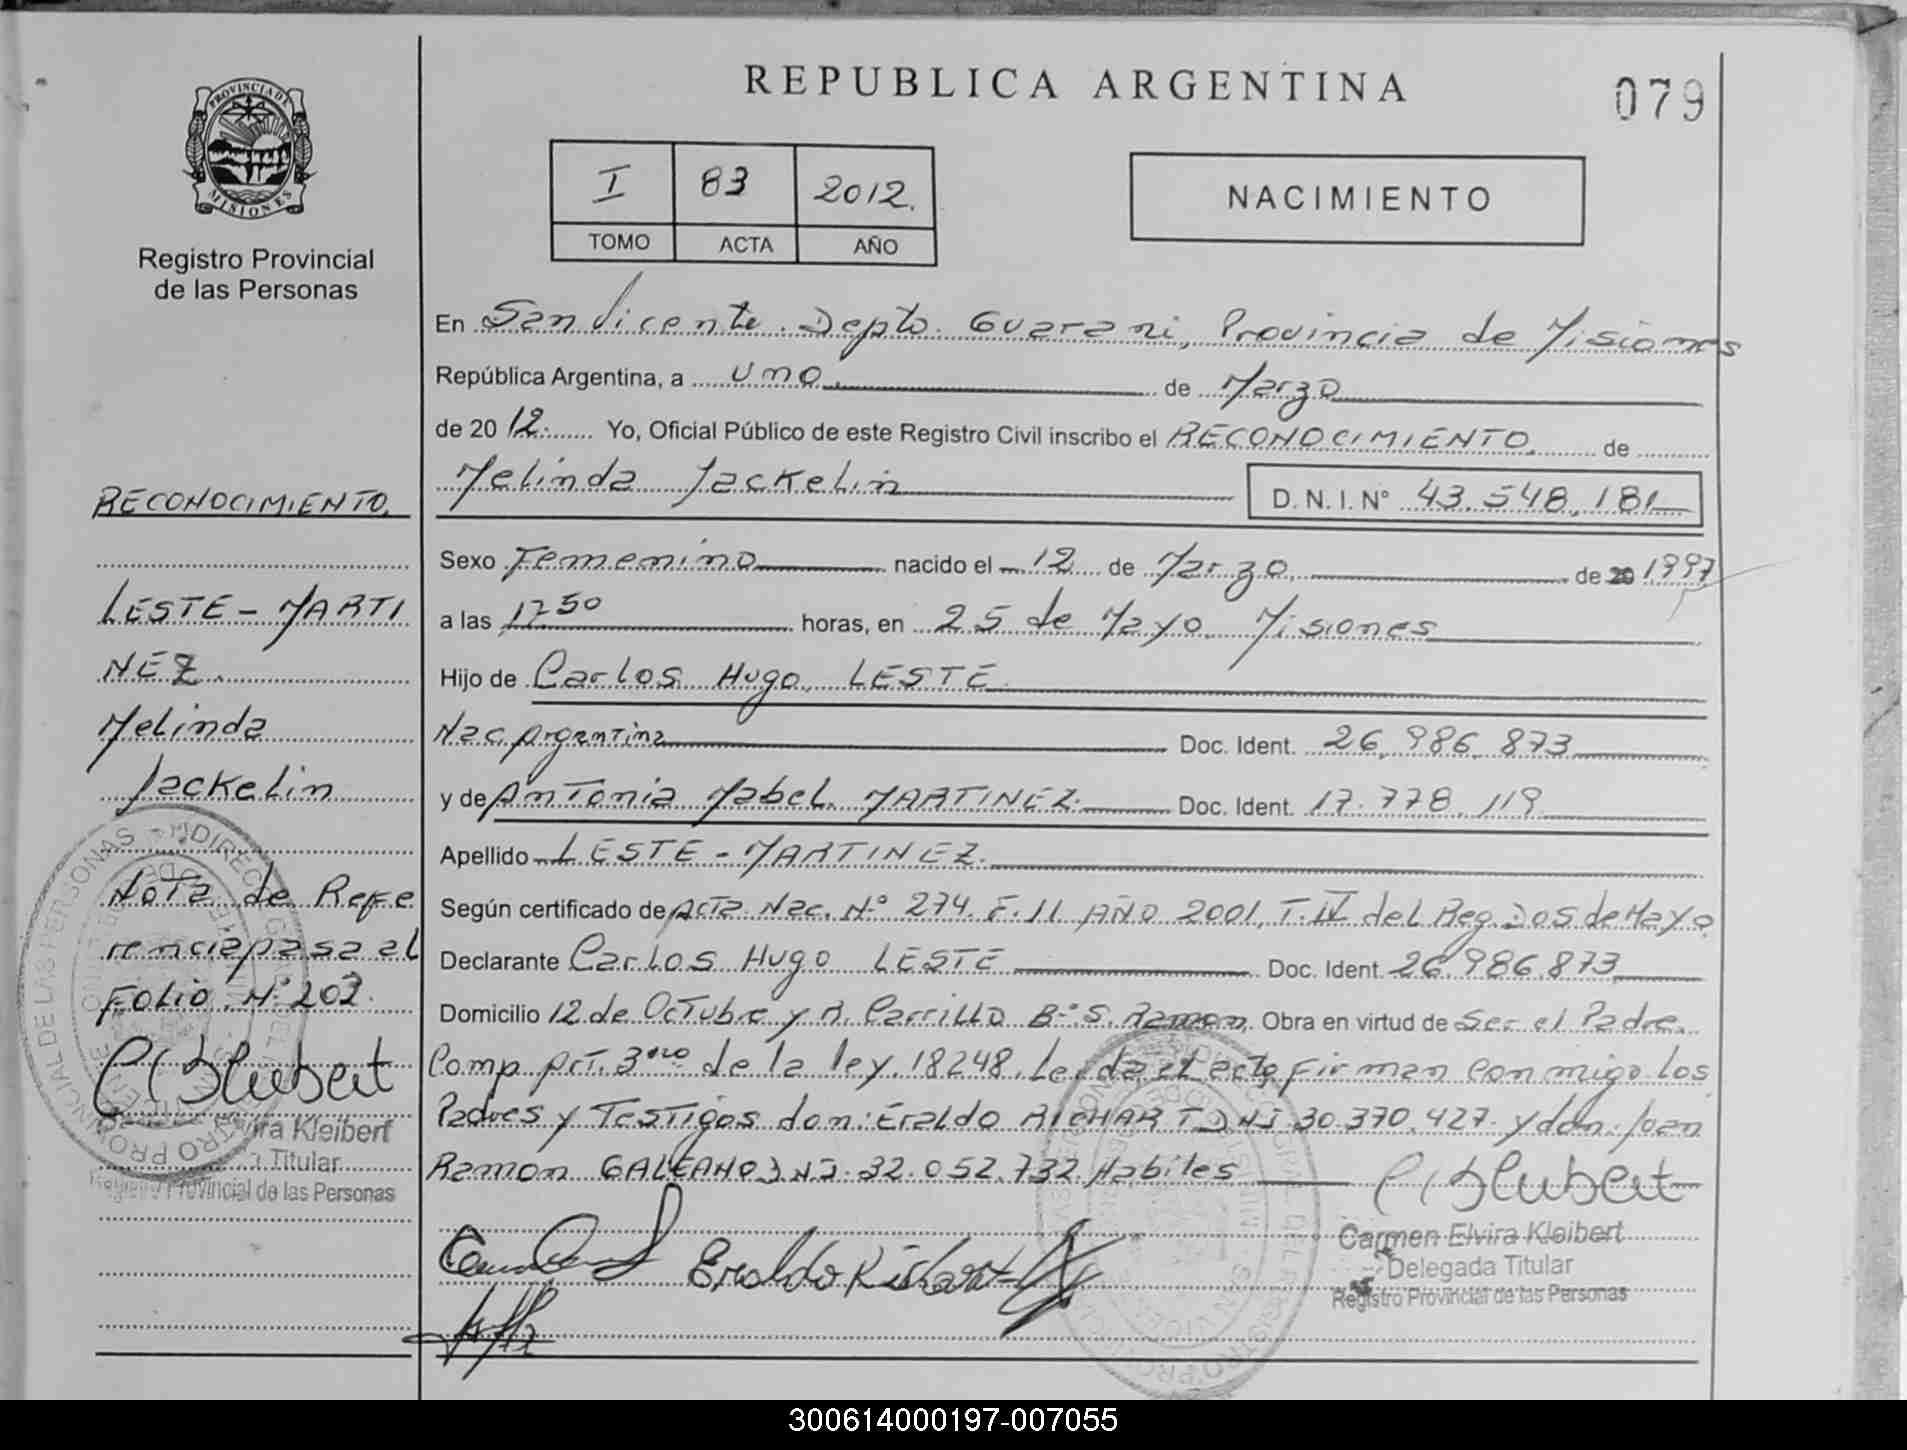 REPUBLICA ARGENTINA
079
PROVINCIA DE
MISIONES
Registro Provincial
de las Personas
I 83 2012.
TOMO ACTA AÑO
NACIMIENTO
En San Vicente. Depto. Guarani, Provincia de Misiones
República Argentina, a uno. de Marzo
de 2012. Yo, Oficial Público de este Registro Civil inscribo el RECONOCIMIENTO. de
Melinda Jackelin D.N.I.N° 43.548.181
Sexo Femenino nacido el 12 de Marzo. de 20 1997
a las 17.50 horas, en 25 de Mayo. Misiones
Hijo de Carlos Hugo LESTE
Nac. Argentina Doc. Ident. 26.986.873
y de Antonia Mabel MARTINEZ. Doc. Ident. 17.778.119
Apellido LESTE - MARTINEZ.
Según certificado de Acta Nac. N° 274. F.11 AÑO 2001, T.IV del Reg. Dos de Mayo
Declarante Carlos Hugo LESTE Doc. Ident. 26.986.873
Domicilio 12 de Octubre y R. Carrillo B° S. Ramon. Obra en virtud de Ser el Padre.
Comp Art. 3ero de la ley. 18248. Leida el acta, firman conmigo los
Padres y Testigos don: Eraldo RICHART DNI 30.370.427. y don: Juan
Ramon GALEANO DNI. 32.052.732 Habiles
Eraldo Richart
Carmen Elvira Kleibert
Delegada Titular
Registro Provincial de las Personas
RECONOCIMIENTO.
LESTE - MARTI
NEZ.
Melinda
Jackelin
Nota de Refe
rencia pasa al
Folio N° 202.
Elvira Kleibert
Titular
Registro Provincial de las Personas
300614000197-007055